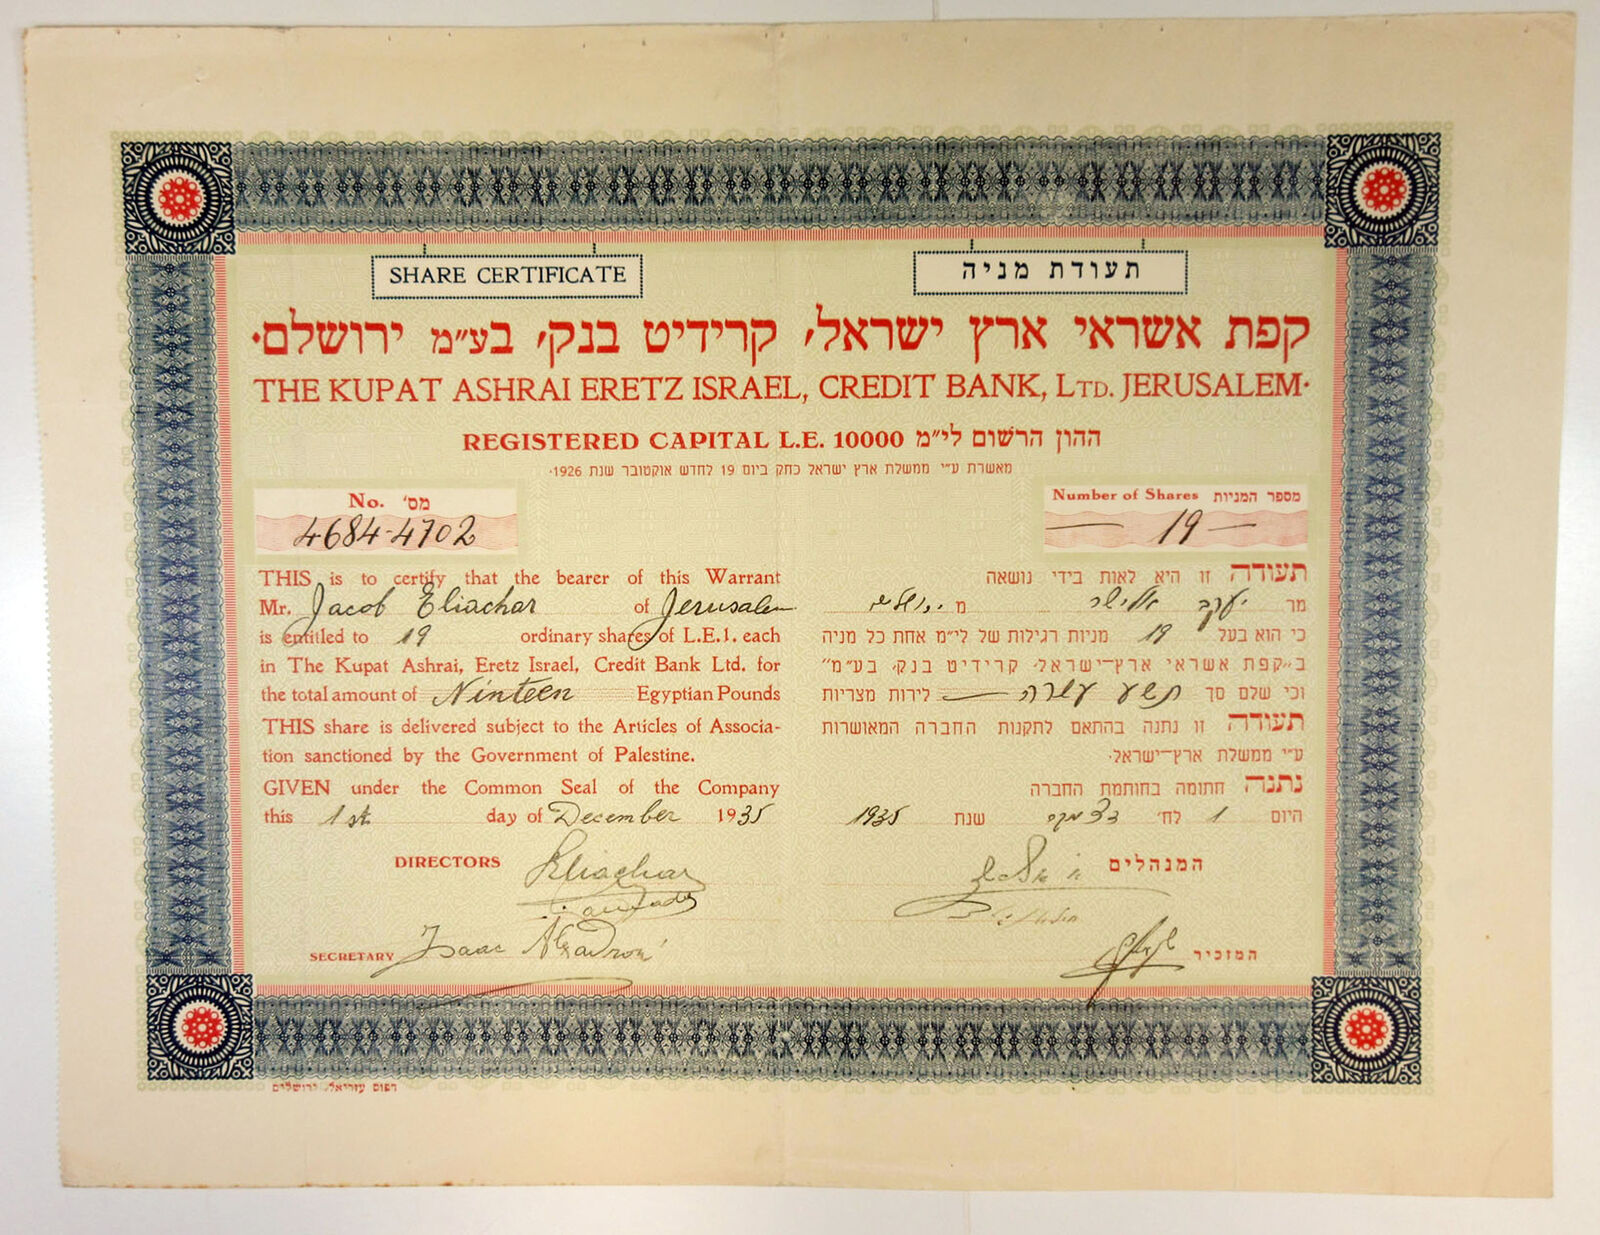 SHARE CERTIFICATE
תעודת מניה
קפת אשראי ארץ ישראל, קרידיט בנק, בע"מ ירושלם.
THE KUPAT ASHRAI ERETZ ISRAEL, CREDIT BANK, LTD. JERUSALEM.
REGISTERED CAPITAL L.E. 10000 ההון הרשום לי"מ
מאשרת ע"י ממשלת ארץ ישראל כחק ביום 19 לחדש אוקטובר שנת 1926.
No. מס'
4684-4702
Number of Shares מספר המניות
— 19 —
THIS is to certify that the bearer of this Warrant
Mr. Jacob Eliachar of Jerusalem
is entitled to 19 ordinary shares of L.E.1. each
in The Kupat Ashrai, Eretz Israel, Credit Bank Ltd. for
the total amount of Ninteen Egyptian Pounds
THIS share is delivered subject to the Articles of Associa-
tion sanctioned by the Government of Palestine.
GIVEN under the Common Seal of the Company
this 1st day of December 1935
DIRECTORS Eliachar
SECRETARY Isaac
תעודה זו היא לאות בידי נושאה
מר יעקב אלישר מ ירושלים
כי הוא בעל 19 מניות רגילות של לי"מ אחת כל מניה
ב"קפת אשראי ארץ-ישראל, קרידיט בנק, בע"מ"
וכי שלם סך תשע עשרה — לירות מצריות
תעודה זו נתנה בהתאם לתקנות החברה המאושרות
ע"י ממשלת ארץ-ישראל.
נתנה חתומה בחותמת החברה
היום 1 לח' דצמבר שנת 1935
המנהלים
המזכיר
דפוס עזריאל, ירושלים